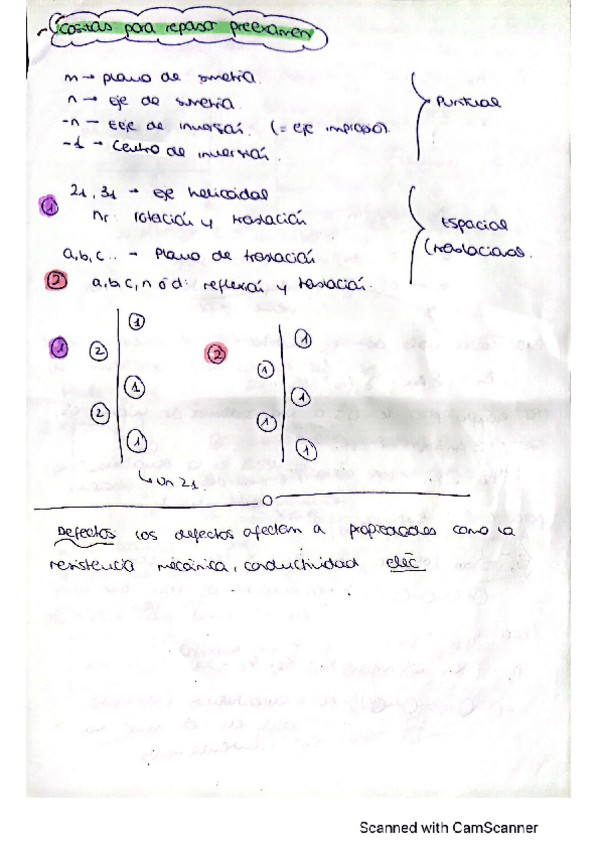 Cositas para repasar preexamen
m → plano de simetría.
n → eje de simetría.
-n → Eje de inversión. (= eje impropio).
-1 → Centro de inversión.
Puntual
21, 31 → eje helicoidal
1 nr: rotación y traslación
Espacial
(traslaciones.
a,b,c.. → Plano de traslación
2 a,b,c,n ó d: reflexión y traslación.
1
1
2
1
2
1
2
1
1
1
1
1
↳ un 21.
Defectos: los defectos afectan a propiedades como la
resistencia mecánica, conductividad eléc
Scanned with CamScanner